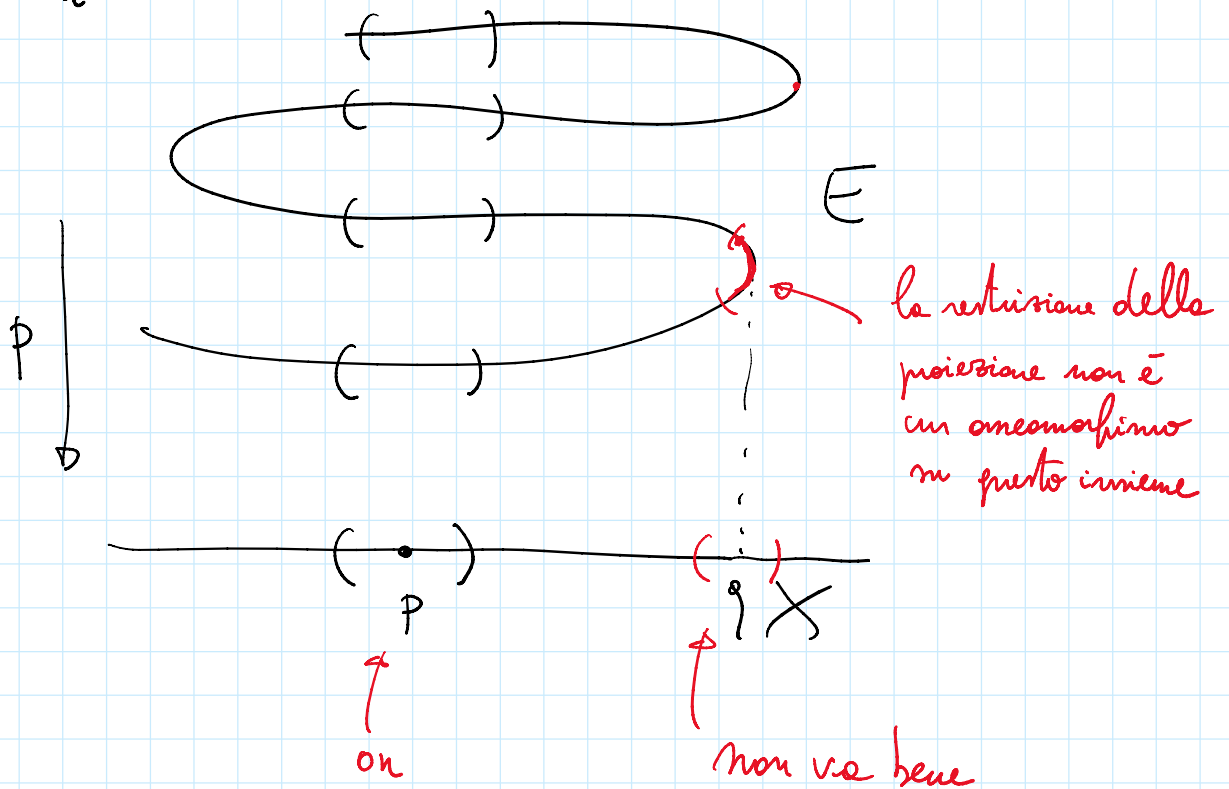 E
la restrizione della
proiezione non è
un omeomorfismo
su questo insieme
p
p
q X
ok
non va bene